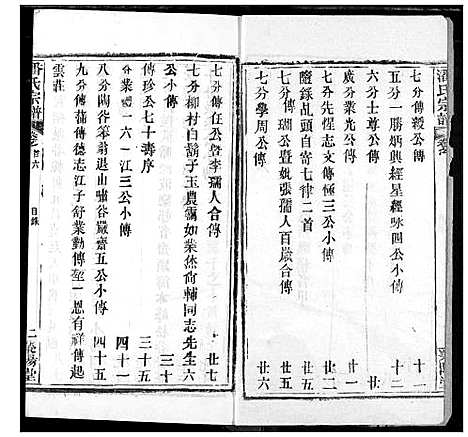 潘氏宗譜
七分傳毅公傳 十一
五分一勝炳興經星經咏四公小傳 十二
六分士尊公傳
廣分業光公傳
七分先惺志文傳極三公小傳
隨錄乩頭自寄七律二首
七分瑚公暨姚張孺人百歲合傳 廿六
七分學周公傳 廿六
七分任公暨李孺人合傳 廿七
七分柳村白鬍子玉農靄如業烋俞輔同志先生六
公小傳
傳珍公七十壽序 三十五
分業一六一江三公小傳 四十一
八分陶谷筹翁退山嘯谷巖齋五公小傳 四十五
九分葯葆傳德志江子舒業勤傳堃一恩有祥傳起
雲莊
潘氏宗譜
卷之廿六
目錄
二